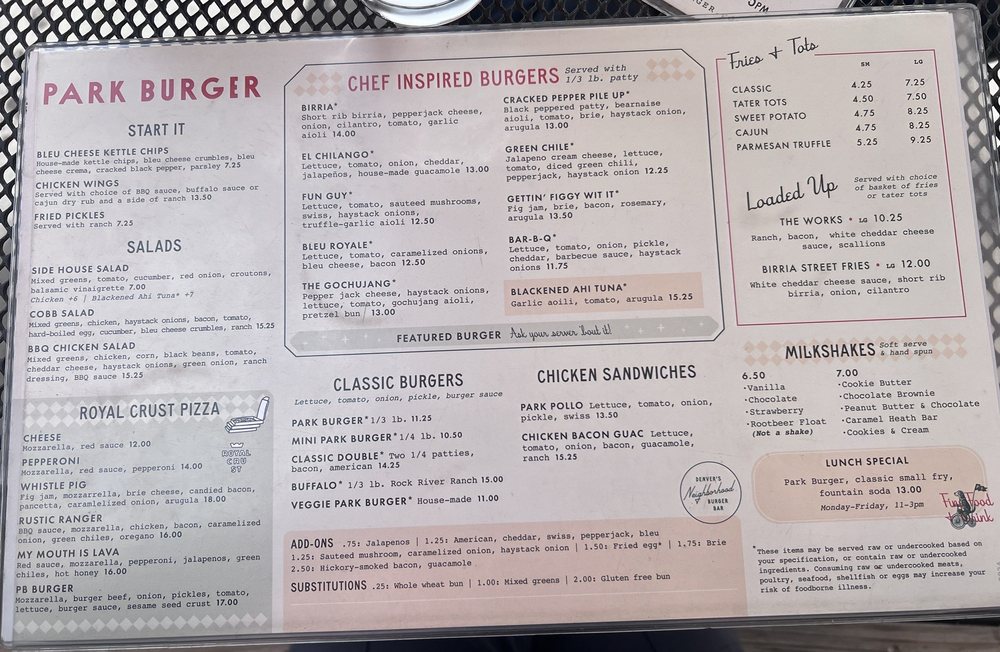 PARK BURGER
START IT
BLEU CHEESE KETTLE CHIPS
House-made kettle chips, bleu cheese crumbles, bleu
cheese crema, cracked black pepper, parsley 7.25
CHICKEN WINGS
Served with choice of BBQ sauce, buffalo sauce or
cajun dry rub and a side of ranch 13.50
FRIED PICKLES
Served with ranch 7.25
SALADS
SIDE HOUSE SALAD
Mixed greens, tomato, cucumber, red onion, croutons,
balsamic vinaigrette 7.00
Chicken +6 | Blackened Ahi Tuna* +7
COBB SALAD
Mixed greens, chicken, haystack onions, bacon, tomato,
hard-boiled egg, cucumber, bleu cheese crumbles, ranch 15.25
BBQ CHICKEN SALAD
Mixed greens, chicken, corn, black beans, tomato,
cheddar cheese, haystack onions, green onion, ranch
dressing, BBQ sauce 15.25
ROYAL CRUST PIZZA
ROYAL
CRU
ST
CHEESE
Mozzarella, red sauce 12.00
PEPPERONI
Mozzarella, red sauce, pepperoni 14.00
WHISTLE PIG
Fig jam, mozzarrella, brie cheese, candied bacon,
pancetta, caramlelized onion, arugula 18.00
RUSTIC RANGER
BBQ sauce, mozzarella, chicken, bacon, caramelized
onion, green chiles, oregano 16.00
MY MOUTH IS LAVA
Red sauce, mozzarella, pepperoni, jalapenos, green
chiles, hot honey 16.00
PB BURGER
Mozzarella, burger beef, onion, pickles, tomato,
lettuce, burger sauce, sesame seed crust 17.00
CHEF INSPIRED BURGERS
Served with
1/3 lb. patty
BIRRIA*
Short rib birria, pepperjack cheese,
onion, cilantro, tomato, garlic
aioli 14.00
EL CHILANGO*
Lettuce, tomato, onion, cheddar,
jalapeños, house-made guacamole 13.00
FUN GUY*
Lettuce, tomato, sauteed mushrooms,
swiss, haystack onions,
truffle-garlic aioli 12.50
BLEU ROYALE*
Lettuce, tomato, caramelized onions,
bleu cheese, bacon 12.50
THE GOCHUJANG*
Pepper jack cheese, haystack onions,
lettuce, tomato, gochujang aioli,
pretzel bun 13.00
CRACKED PEPPER PILE UP*
Black peppered patty, bearnaise
aioli, tomato, brie, haystack onion,
arugula 13.00
GREEN CHILE*
Jalapeno cream cheese, lettuce,
tomato, diced green chili,
pepperjack, haystack onion 12.25
GETTIN' FIGGY WIT IT*
Fig jam, brie, bacon, rosemary,
arugula 13.50
BAR-B-Q*
Lettuce, tomato, onion, pickle,
cheddar, barbecue sauce, haystack
onions 11.75
BLACKENED AHI TUNA*
Garlic aoili, tomato, arugula 15.25
FEATURED BURGER Ask your server 'bout it!
CLASSIC BURGERS
Lettuce, tomato, onion, pickle, burger sauce
PARK BURGER* 1/3 lb. 11.25
MINI PARK BURGER* 1/4 lb. 10.50
CLASSIC DOUBLE* Two 1/4 patties,
bacon, american 14.25
BUFFALO* 1/3 lb. Rock River Ranch 15.00
VEGGIE PARK BURGER* House-made 11.00
CHICKEN SANDWICHES
PARK POLLO Lettuce, tomato, onion,
pickle, swiss 13.50
CHICKEN BACON GUAC Lettuce,
tomato, onion, bacon, guacamole,
ranch 15.25
DENVER'S
Neighborhood
BURGER
BAR
ADD-ONS .75: Jalapenos | 1.25: American, cheddar, swiss, pepperjack, bleu
1.25: Sauteed mushroom, caramelized onion, haystack onion | 1.50: Fried egg* | 1.75: Brie
2.50: Hickory-smoked bacon, guacamole
SUBSTITUTIONS .25: Whole wheat bun | 1.00: Mixed greens | 2.00: Gluten free bun
Fries + Tots
SM LG
CLASSIC 4.25 7.25
TATER TOTS 4.50 7.50
SWEET POTATO 4.75 8.25
CAJUN 4.75 8.25
PARMESAN TRUFFLE 5.25 9.25
Loaded Up
Served with choice
of basket of fries
or tater tots
THE WORKS • LG 10.25
Ranch, bacon, white cheddar cheese
sauce, scallions
BIRRIA STREET FRIES • LG 12.00
White cheddar cheese sauce, short rib
birria, onion, cilantro
MILKSHAKES
Soft serve
& hand spun
6.50
·Vanilla
·Chocolate
·Strawberry
·Rootbeer Float
(Not a shake)
7.00
·Cookie Butter
·Chocolate Brownie
·Peanut Butter & Chocolate
·Caramel Heath Bar
·Cookies & Cream
LUNCH SPECIAL
Park Burger, classic small fry,
fountain soda 13.00
Monday-Friday, 11-3pm
*These items may be served raw or undercooked based on
your specification, or contain raw or undercooked
ingredients. Consuming raw or undercooked meats,
poultry, seafood, shellfish or eggs may increase your
risk of foodborne illness.